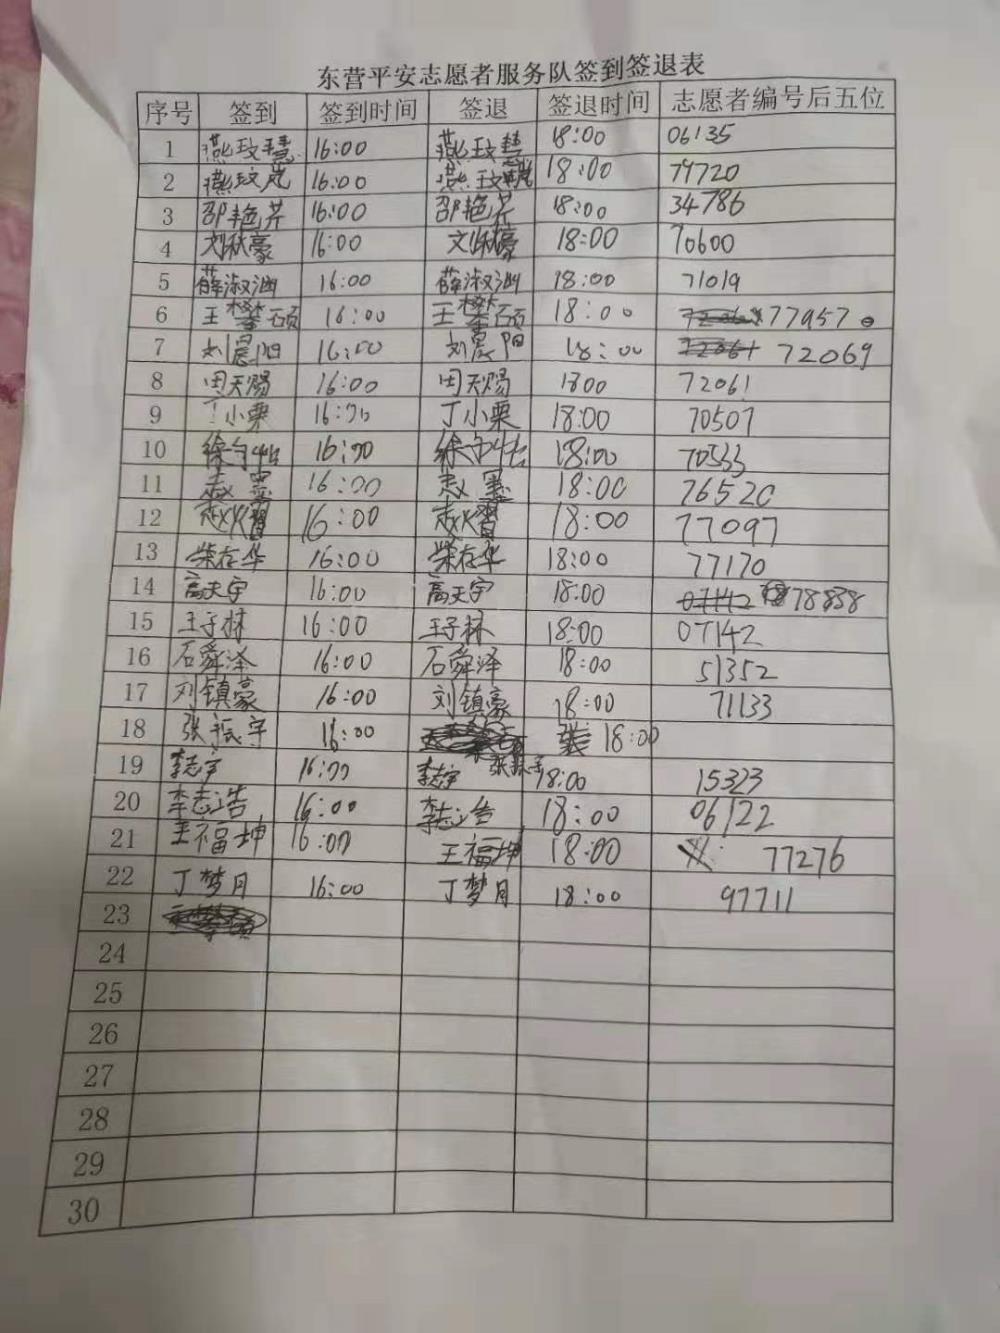 东营平安志愿者服务队签到签退表
序号 签到 签到时间 签退 签退时间 志愿者编号后五位
1 燕玫慧 16:00 燕玫慧 18:00 06135
2 燕玫岚 16:00 燕玫 18:00 79720
3 邵艳芹 16:00 邵艳芹 18:00 34786
4 刘秋豪 16:00 刘秋豪 18:00 70600
5 薛淑涵 16:00 薛淑涵 18:00 71019
6 王攀硕 16:00 王攀硕 18:00 77957
7 刘晨阳 16:00 刘晨阳 18:00 72069
8 田天赐 16:00 田天赐 1800 72061
9 丁小栗 16:00 丁小栗 18:00 70507
10 徐 16:00 徐 18:00 70533
11 16:00 18:00 76520
12 16:00 18:00 77097
13 荣存华 16:00 荣存华 18:00 77170
14 高天宇 16:00 高天宇 18:00 78838
15 王子林 16:00 王子林 18:00 07142
16 石舜泽 16:00 石舜泽 18:00 51352
17 刘镇豪 16:00 刘镇豪 18:00 71133
18 张振宇 16:00 张 18:00
19 李志宇 16:00 李志宇 张振宇 18:00 15323
20 李志浩 16:00 李志浩 18:00 06122
21 王福坤 16:00 王福坤 18:00 77276
22 丁梦月 16:00 丁梦月 18:00 97711
23
24
25
26
27
28
29
30